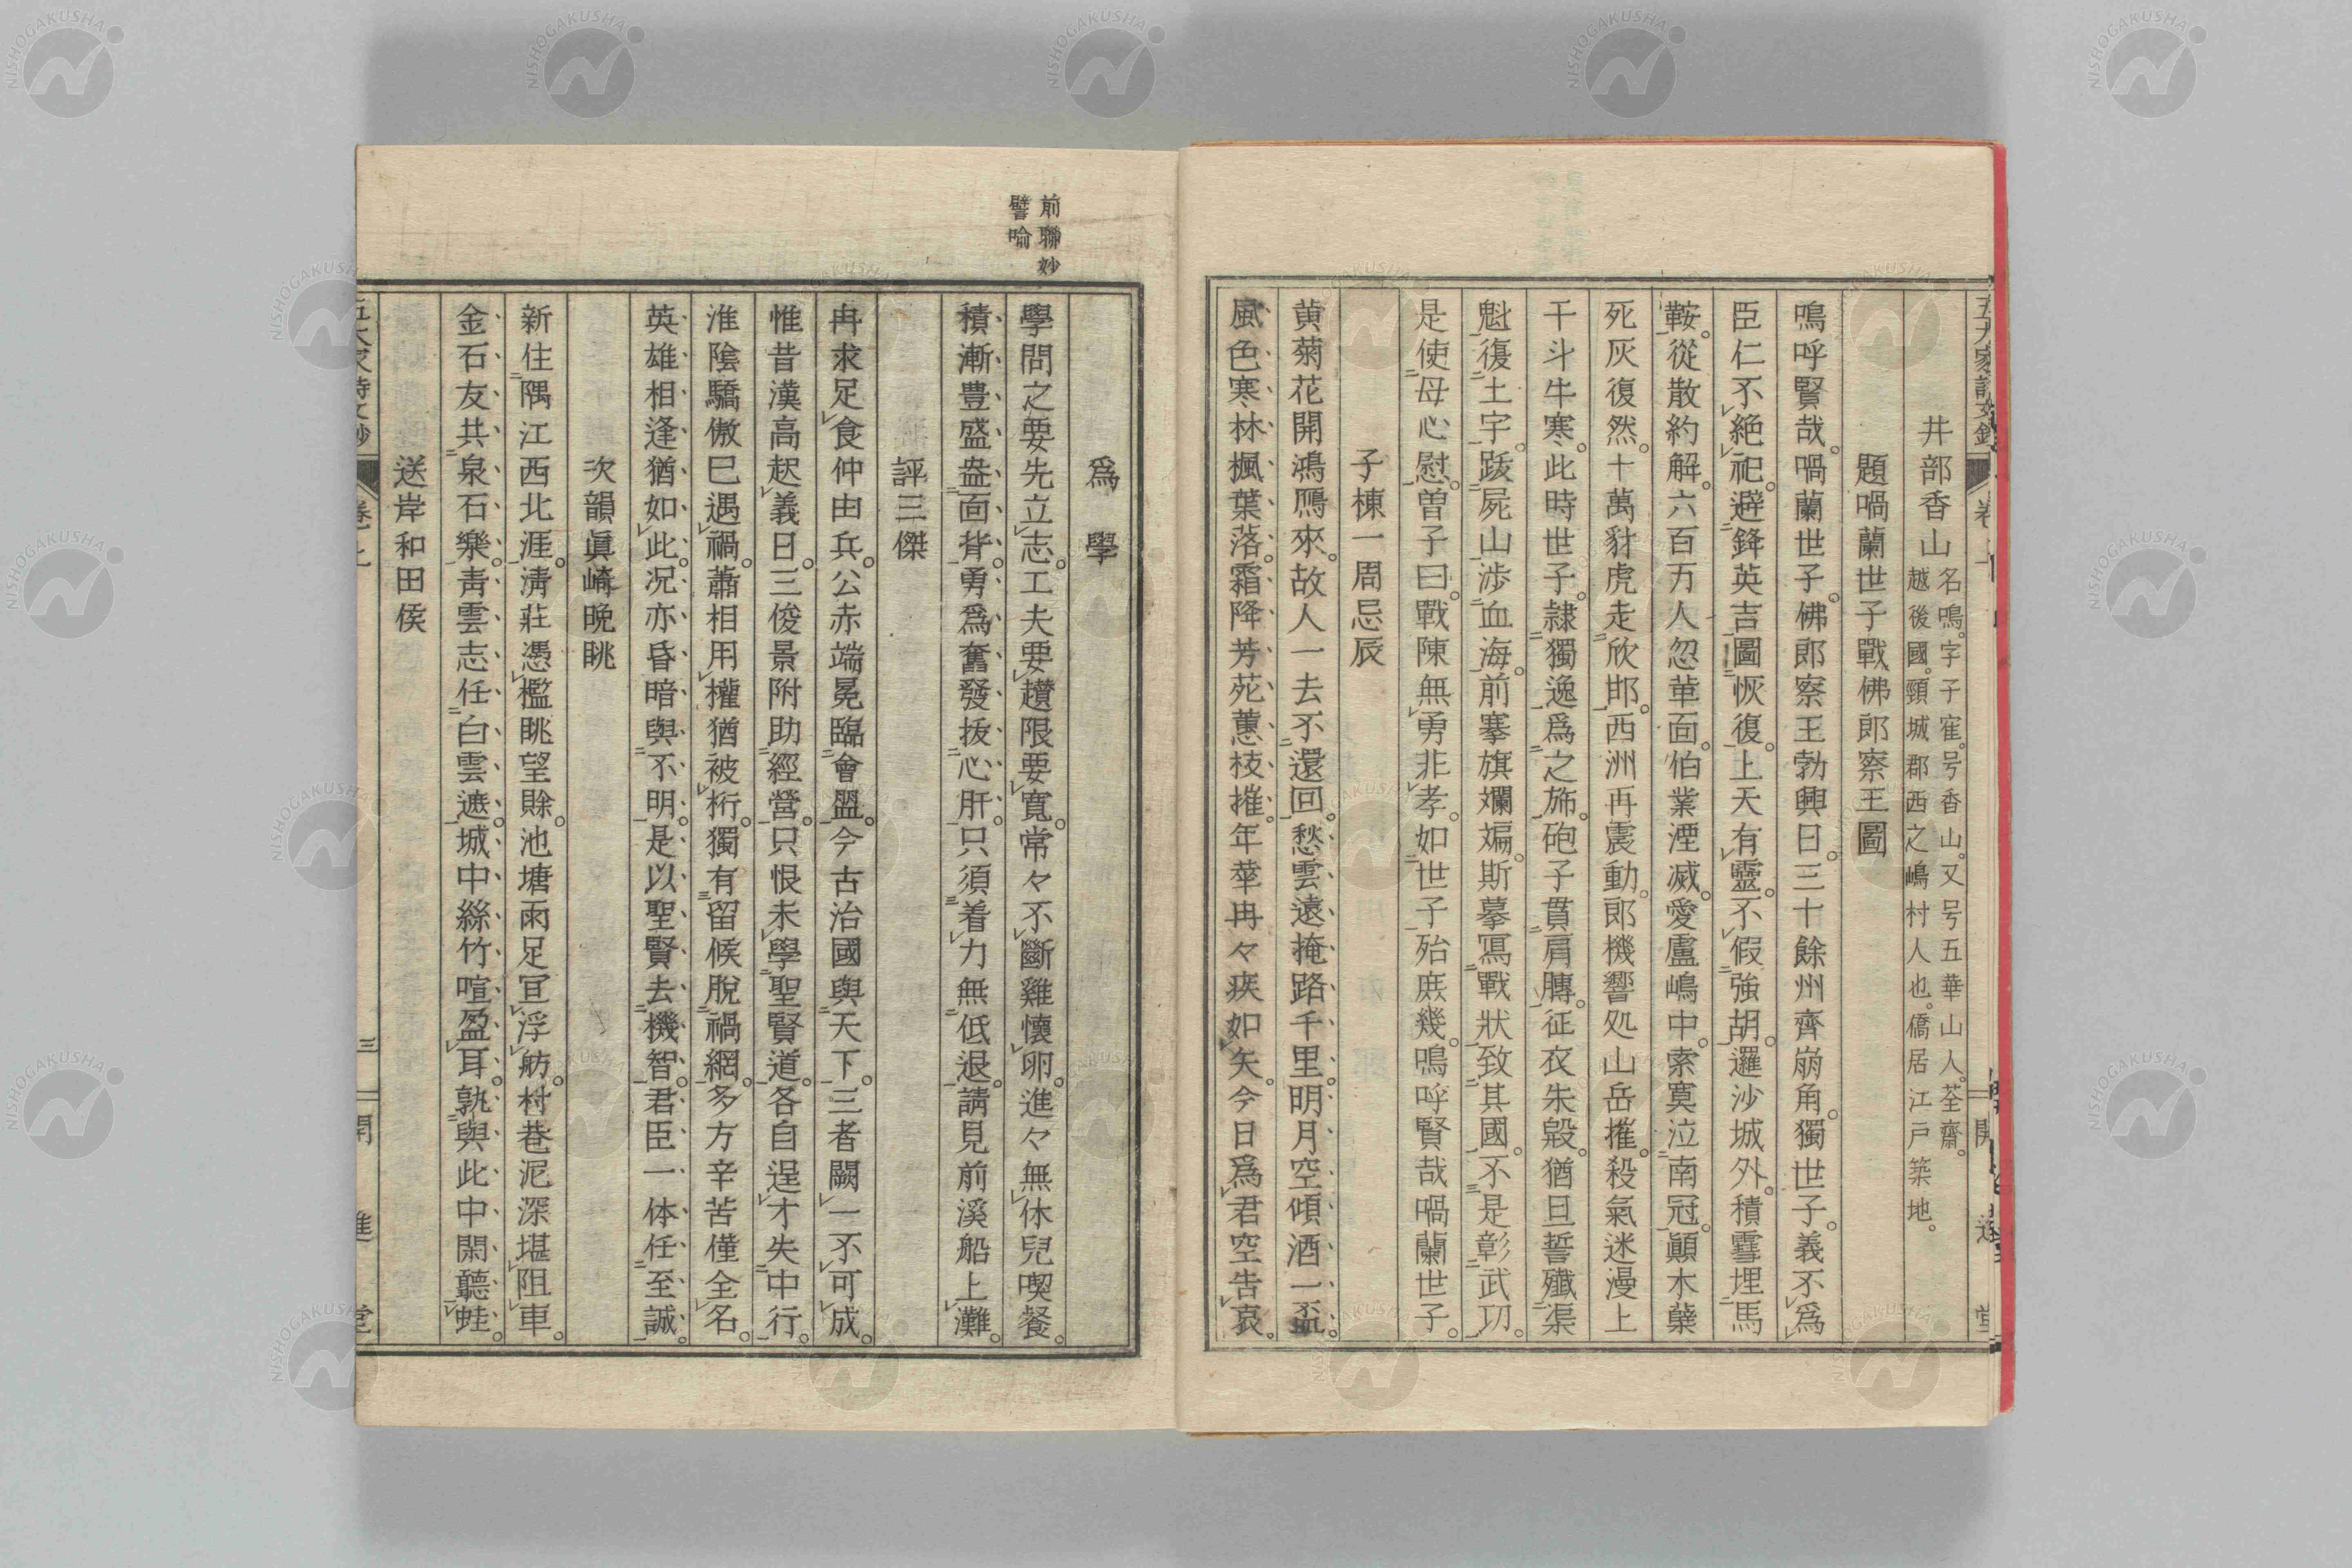 井部香山
名鳴。字子寉。号香山。又号五華山人。荃齋。
越後國。頸城郡西之嶋村人也。僑居江戸築地。
題喎蘭世子戰佛郎察王圖
鳴呼賢哉。喎蘭世子。佛郎察王勃興日。三十餘州齊崩角。獨世子。義不爲
臣仁不絶祀。避鋒英吉圖恢復。上天有靈不假強胡。邏沙城外。積雪埋馬
鞍。從散約解。六百万人忽革面。伯業湮滅。愛盧嶋中。索寞泣南冠。顚木蘖
死灰復然。十萬豺虎走欣邯。西洲再震動。郎機響処山岳摧。殺氣迷漫上
干斗牛寒。此時世子。隷獨逸爲之斾。砲子貫肩膊。征衣朱殷。猶且誓殲渠
魁復土宇。跋屍山涉血海。前搴旗斕斒。斯摹寫戰狀致其國。不是彰武功。
是使母心慰。曽子曰。戰陳無勇非孝。如世子殆庶幾。鳴呼賢哉喎蘭世子。
子棟一周忌辰
黄菊花開鴻鴈來。故人一去不還回。愁雲遠掩路千里。明月空傾酒一盃。
風色寒林楓葉落。霜降芳苑蕙枝摧。年華冉々疾如矢。今日爲君空告哀。
爲學
前聯妙
譬喻
學問之要先立志。工夫要趲限要寛。常々不斷雞懷卵。進々無休兒喫餐。
積漸豊盛盎面背。勇爲奮發抜心肝。只須着力無低退。請見前溪船上灘。
評三傑
冉求足食仲由兵。公赤端冕臨會盟。今古治國與天下。三者闕一不可成。
惟昔漢高起義日。三俊景附助經營。只恨未學聖賢道。各自逞才失中行。
淮陰驕傲已遇禍。蕭相用權猶被桁。獨有留候脫禍網。多方辛苦僅全名。
英雄相逢猶如此。况亦昏暗與不明。是以聖賢去機智。君臣一体任至誠。
次韻眞崎晩眺
新住隅江西北涯。淸莊憑檻眺望賖。池塘雨足宜浮舫。村巷泥深堪阻車。
金石友共泉石樂。靑雲志任白雲遮。城中絲竹喧盈耳。孰與此中閑聽蛙。
送岸和田侯